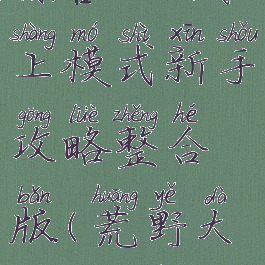 shàng mó shì xīn shǒu
上模式新手
gōng lüè zhěng hé
攻略整合
bǎn huāng yě dà
版(荒野大